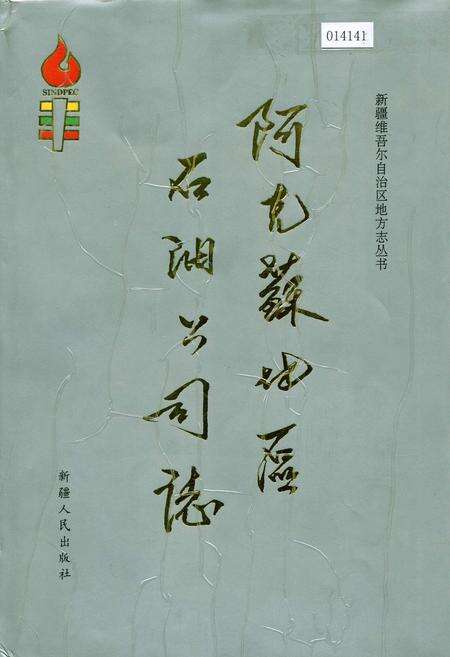 014141
SINDPEC
新疆维吾尔自治区地方志丛书
阿克蘇地區
石油公司誌
新疆人民出版社